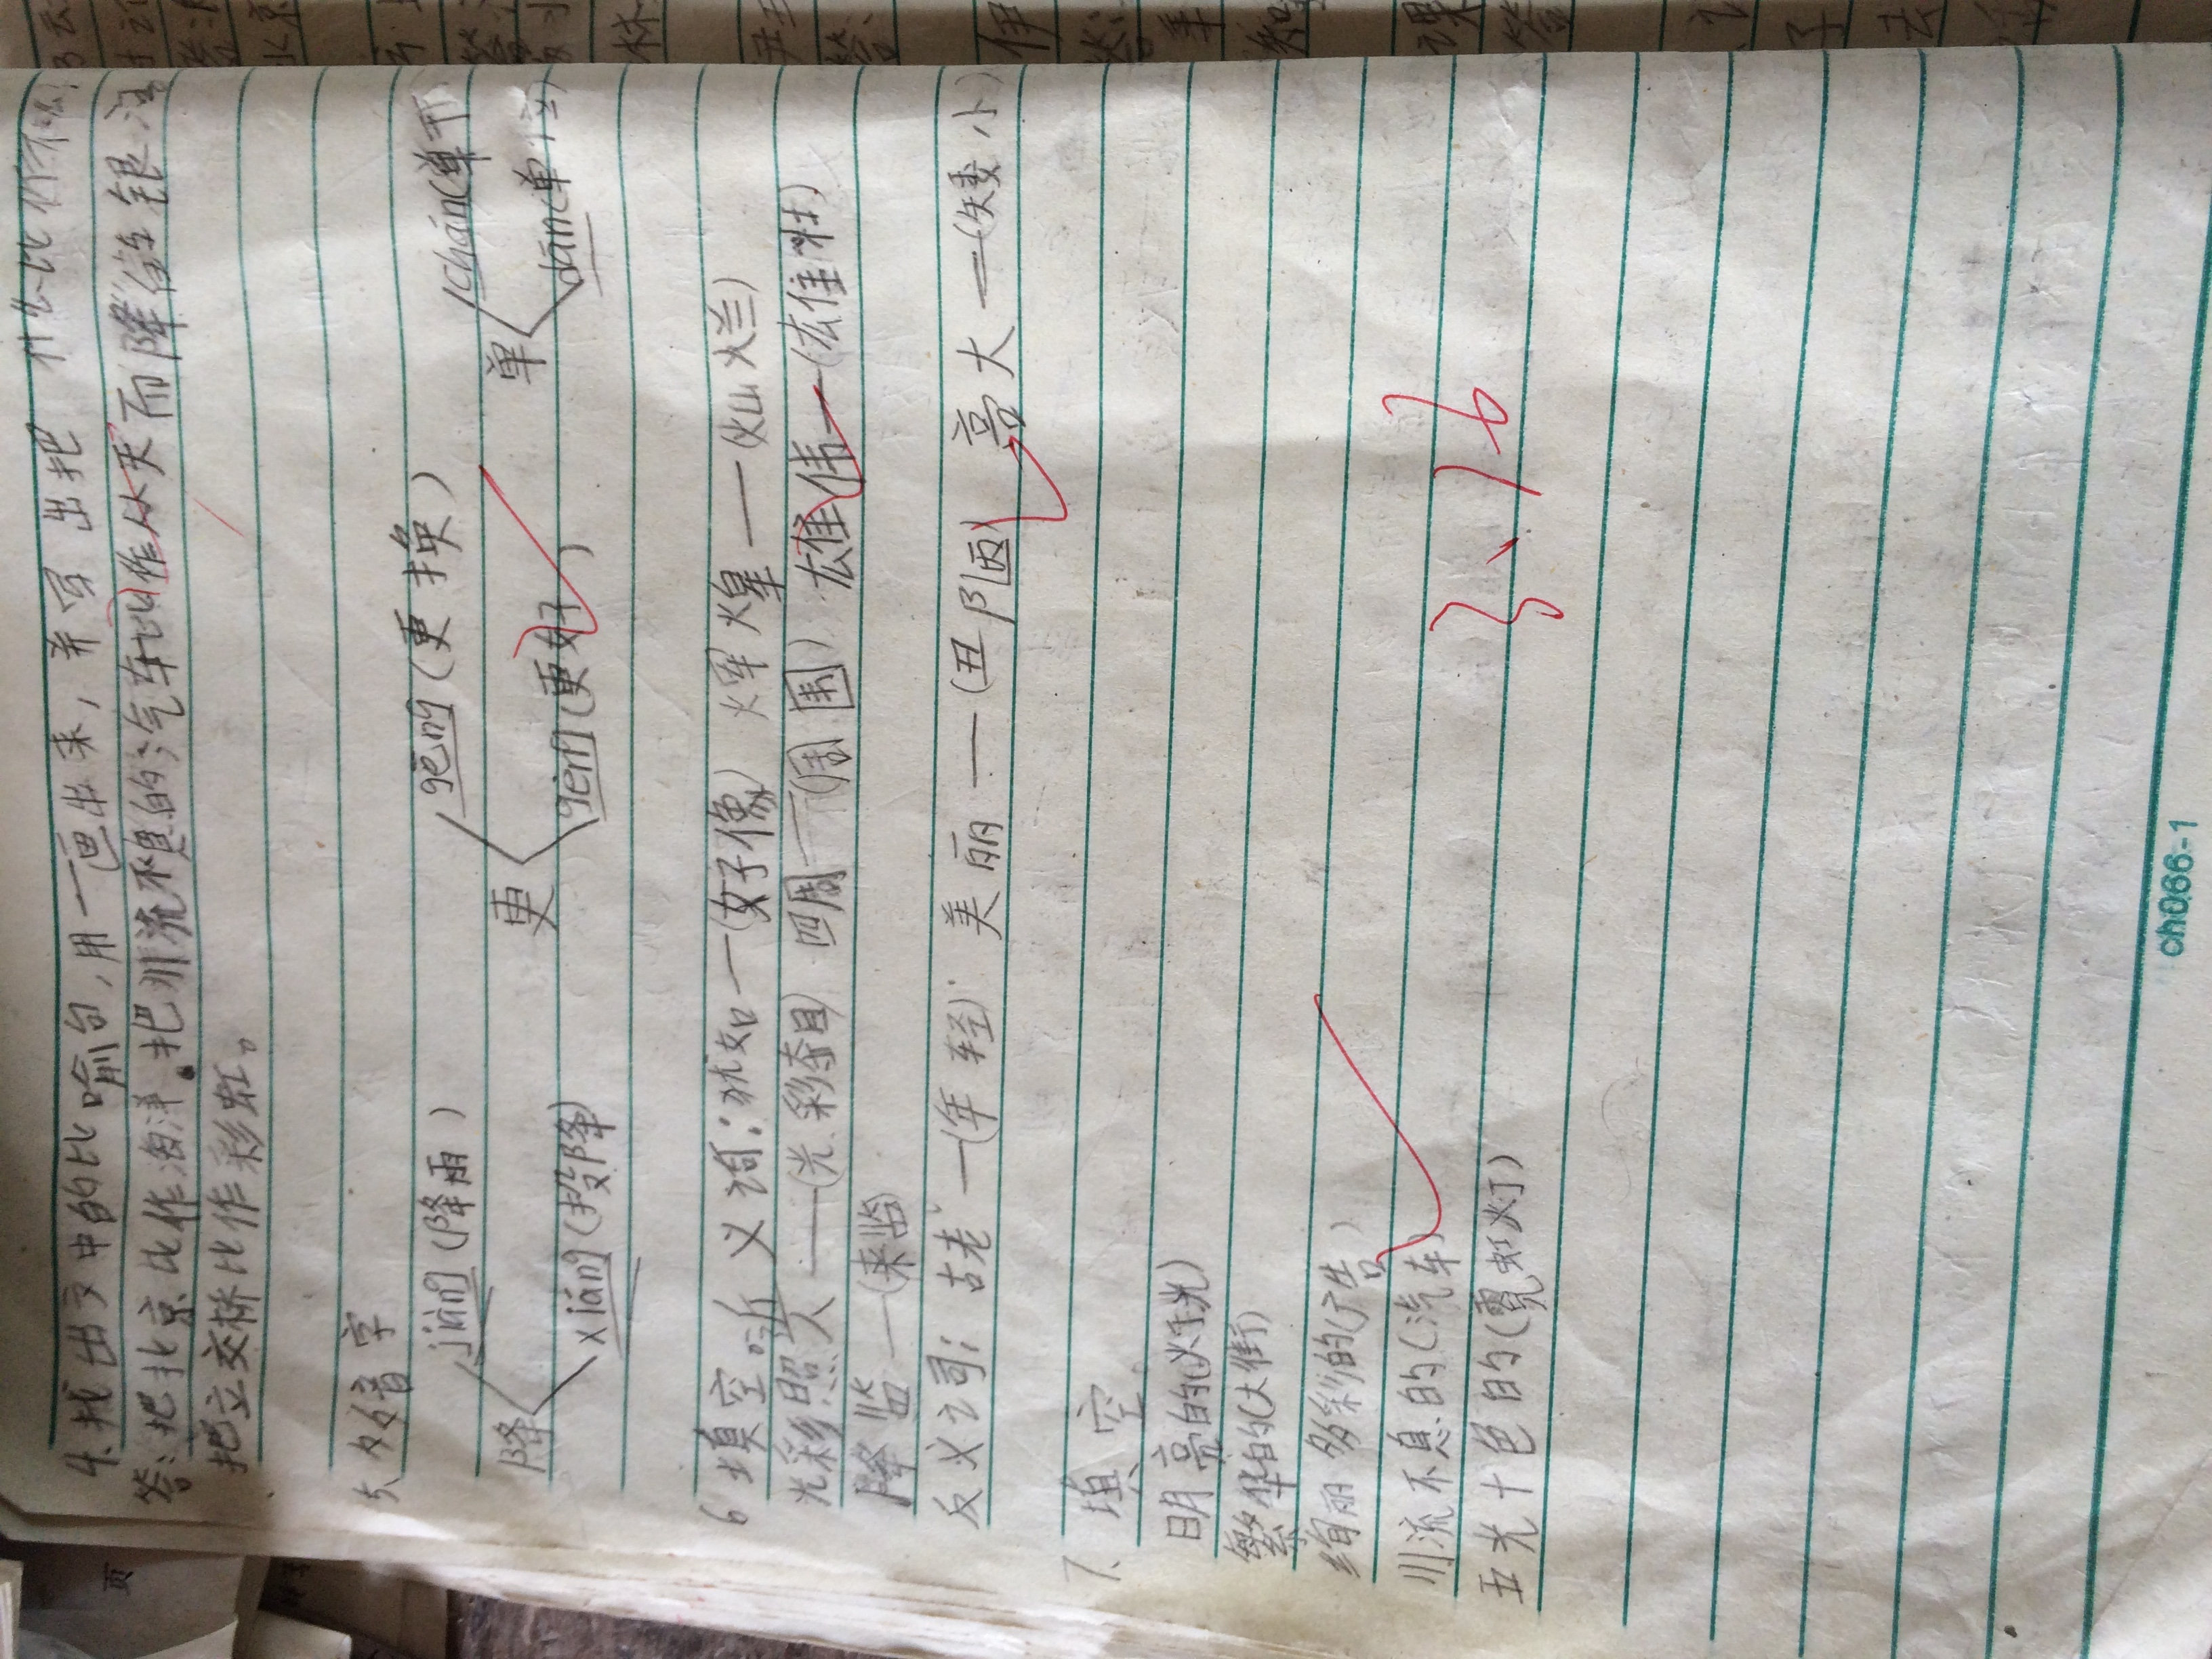 4、找出文中的比喻句,用一画出来,并写出把 什么比作什么?
答:把北京比作海洋.把川流不息的汽车比作从天而降的银注
把立交桥比作彩虹。
5、多音字
jiàng(降雨) gēng(更换) chán(单于
降 更 单
xiáng(投降) gèng(更好) dān(单位)
6 填空 近义词:犹如—(好像) 辉煌—(灿烂)
光彩照人—(光彩夺目) 四周—(周围) 雄伟—(雄壮)
降监—(来监)
反义词:古老—(年轻) 美丽—(丑陋) 高大—(矮小)
7、填空。
明亮的(灯光)
繁华的(大街)
绚丽多彩的(广告)
川流不息的(汽车)
五光十色的(霓虹灯)
3、16
ch066-1